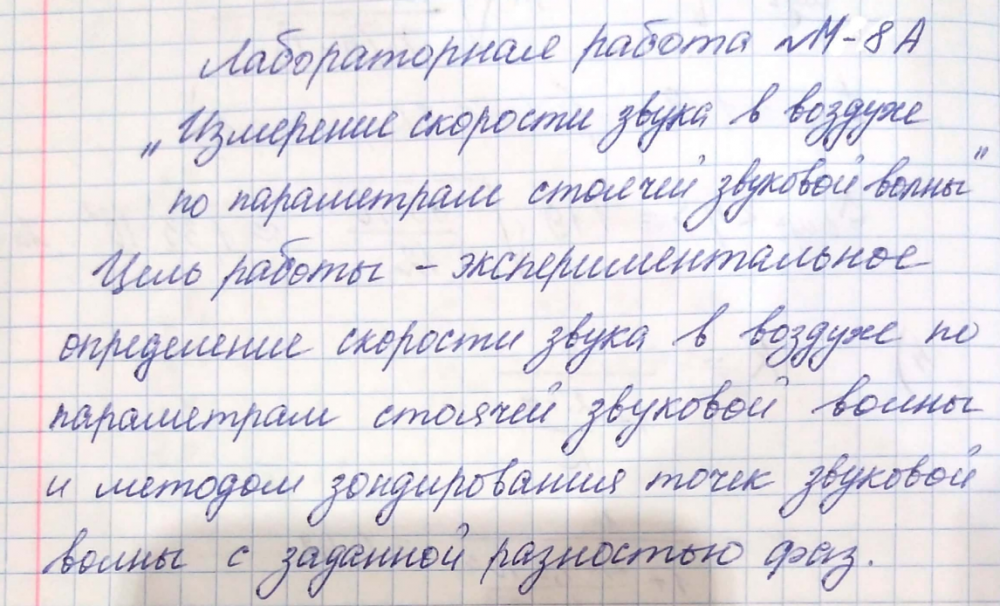 Лабораторная работа №М-8А
„Измерение скорости звука в воздухе
по параметрам стоячей звуковой волны"
Цель работы - экспериментальное
определение скорости звука в воздухе по
параметрам стоячей звуковой волны
и методом зондирования точек звуковой
волны с заданной разностью фаз.